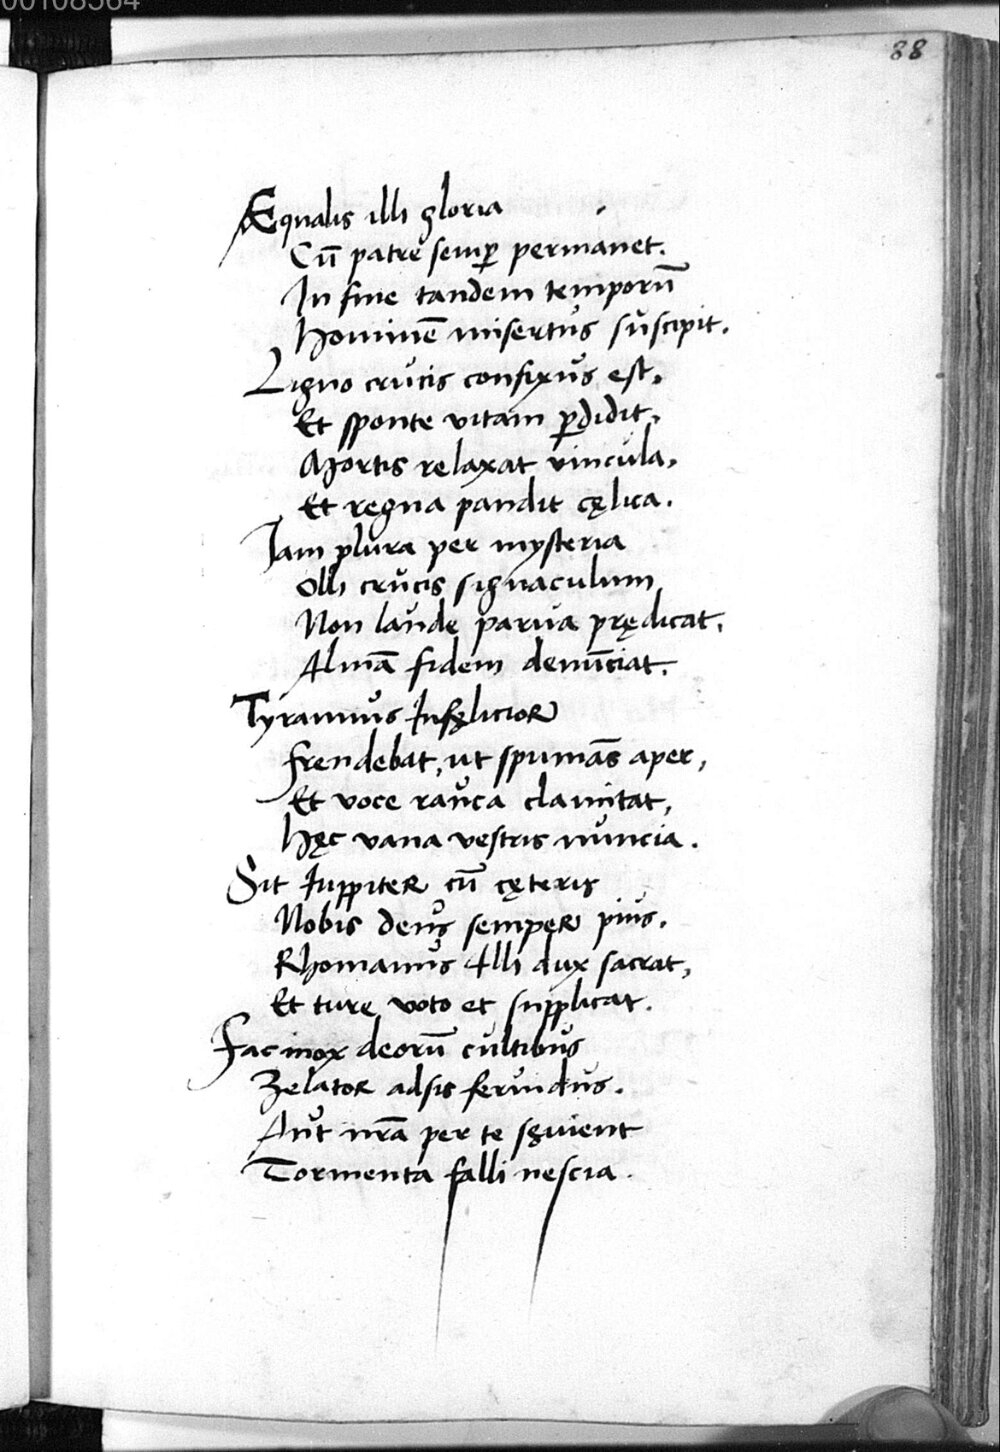 00108564
88
Æqualis illi gloria
Cū patre semꝑ permanet.
In fine tandem temporū
Hominē misertus suscipit.
Ligno crucis confixus est,
Et sponte vitam ꝑdidit,
Mortis relaxat vincula,
Et regna pandit cęlica.
Iam plura per mysteria
Olli crucis signaculum
Non laude parua prędicat,
Almā fidem denūciat.
Tyrannus Infęlicior
frendebat, ut spumās aper,
Et voce rauca clamitat,
Hęc vana vestris nuncia.
Sit Iuppiter cū cęteris
Nobis deus semper pius.
Rhomanus Illi dux sacrat,
Et ture voto et supplicat.
Fac mox deorū cultibus
Zelator adsis feruidus.
Aut nrā per te sęuient
Tormenta falli nescia.